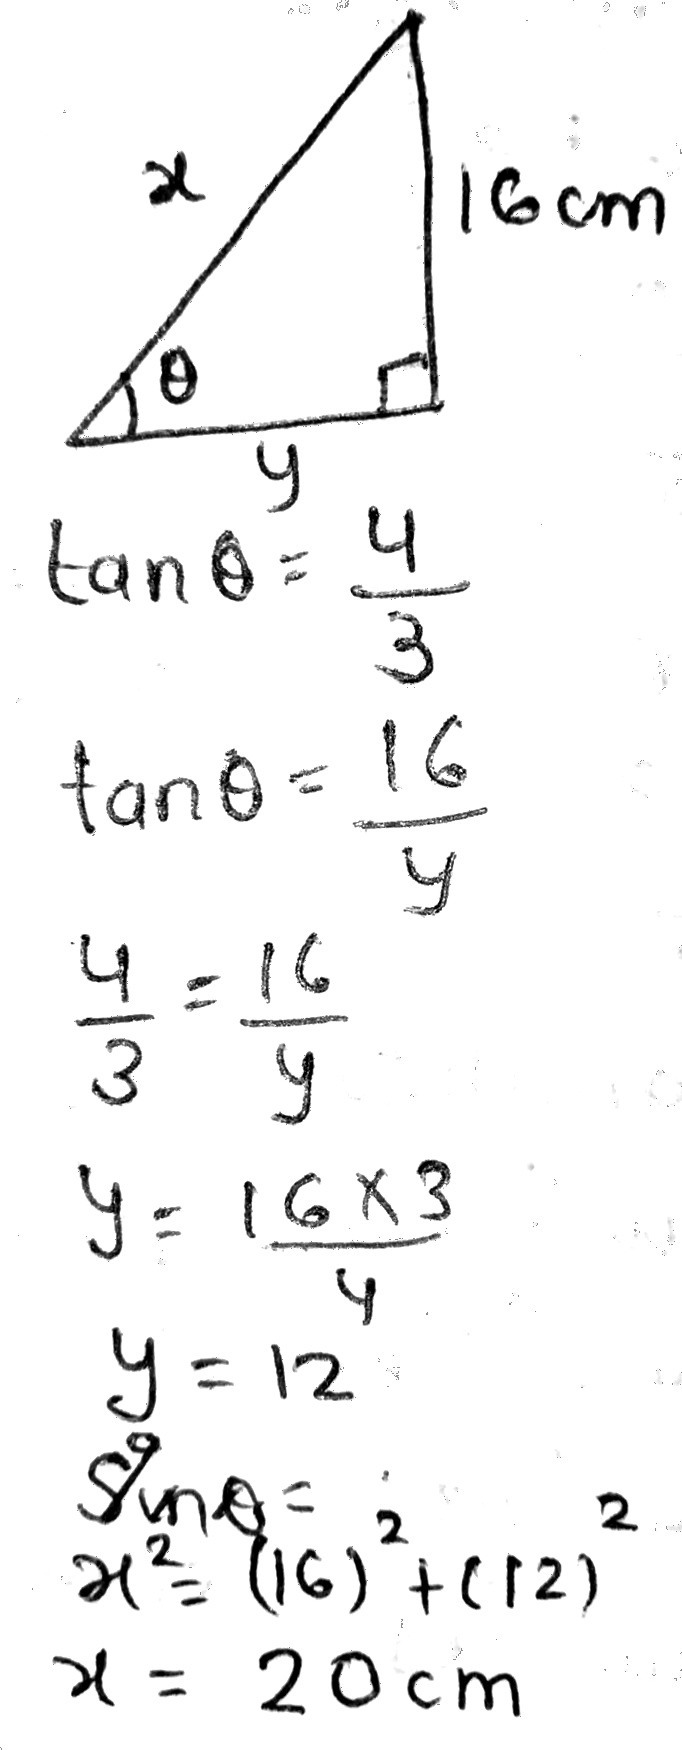 x
16cm
θ
y
tanθ = 4/3
tanθ = 16/y
4/3 = 16/y
y = 16×3/4
y = 12
Sinθ =
x² = (16)² + (12)²
x = 20cm